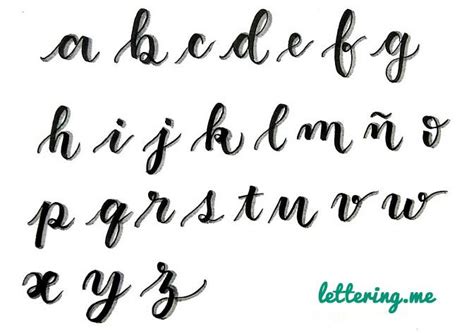 a b c d e f g
h i j k l m ñ o
p q r s t u v w
x y z
lettering.me